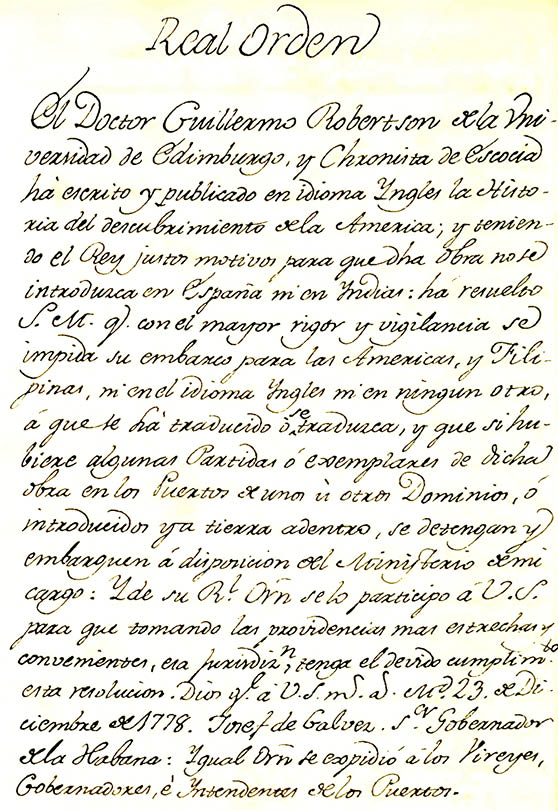 Real Orden
El Doctor Guillermo Robertson de la Vni-
versidad de Edimburgo, y Chronista de Escocia
há escrito y publicado en idioma Yngles la Histo-
ria del descubrimiento de la America; y tenien-
do el Rey justos motivos para que dha obra no se
introduzca en España ni en Yndias: há resuelto
S. M. q. con el mayor rigor y vigilancia se
impida su embarco para las Americas, y Fili-
pinas, ni en el idioma Yngles ni en ningun otro,
á que se há traducido ó se traduzca, y que si hu-
biere algunas Partidas ó exemplares de dicha
obra en los Puertos de unos ù otros Dominios, ó
introducidos ya tierra adentro, se detengan y
embarguen á disposicion del Ministerio de mi
cargo: Y de su Rl. Orn se lo participo á V. S.
para que tomando las providencias mas estrechas y
convenientes, esa jurisdizn, tenga el devido cumplimto
esta resolucion. Dios ge. á V. S. ms. as. Md. 23. de Di-
ciembre de 1778. Josef de Galvez. Sor Gobernador
de la Habana: Ygual Orn se expidió á los Vireyes,
Gobernadores, é Yntendentes de los Puertos.